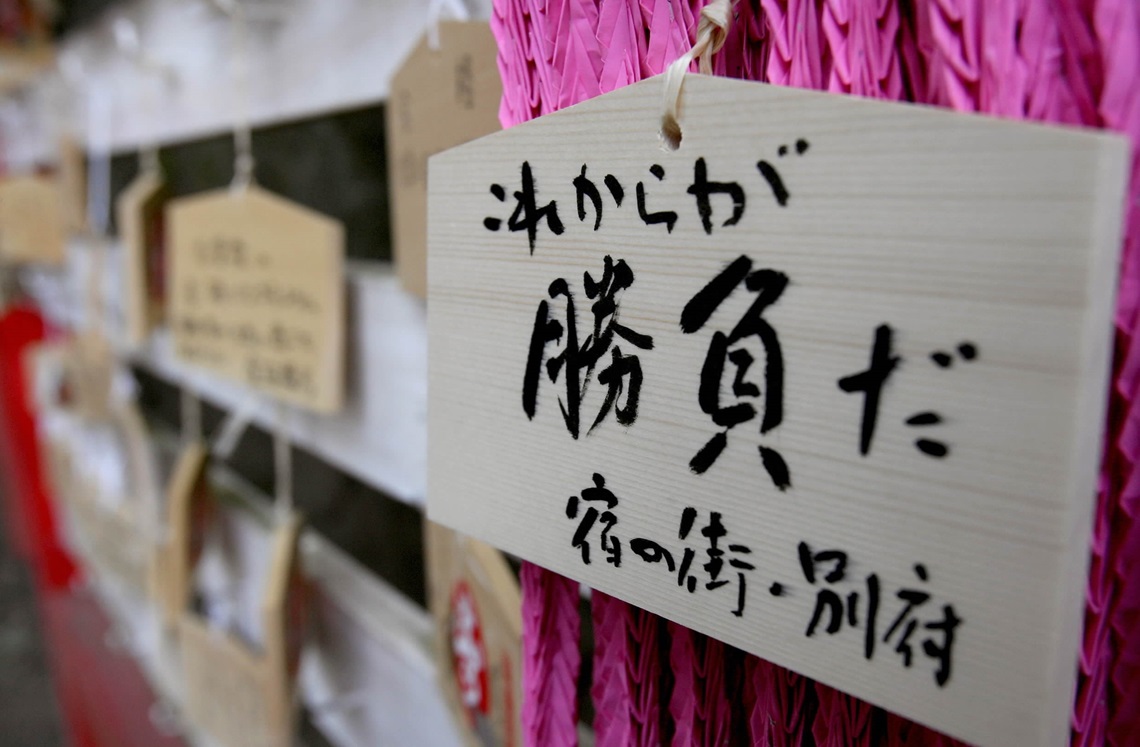 これからが
勝負だ
宿の街・別府